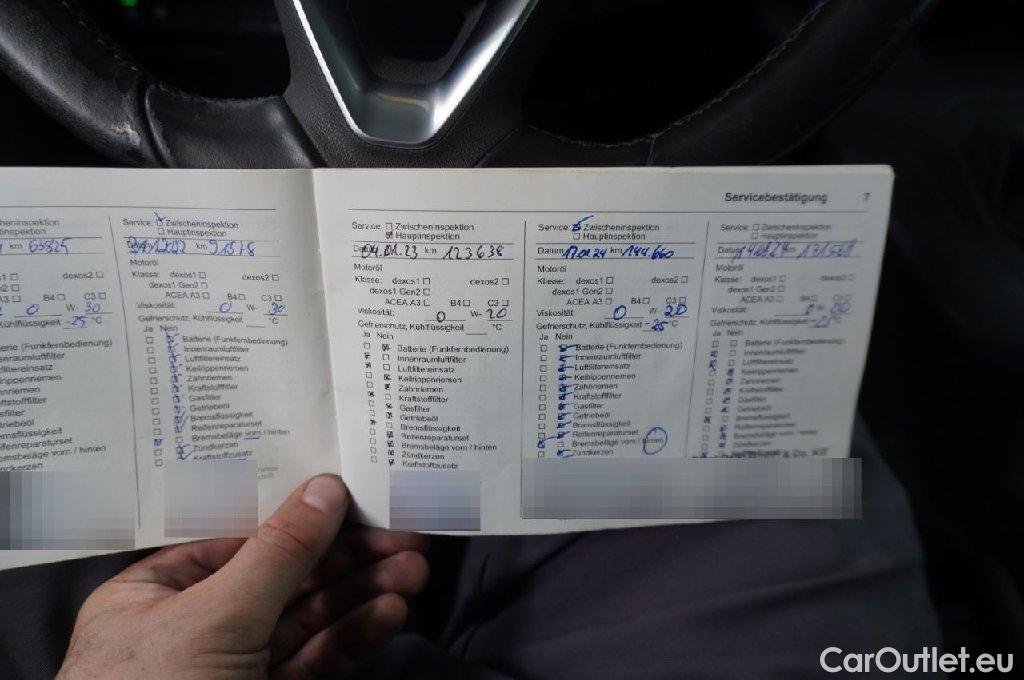 Servicebestätigung 7
heninspektion
ptinspektion
km 65825
dexos2
B4 C3
0 W- 30
Kühlflüssigkeit -25 °C
tterie (Funkfernbedienung)
enraumluftfilter
ftfiltereinsatz
ilrippenriemen
hnriemen
aftstofffilter
sfilter
triebeöl
emsflüssigkeit
ifenreparaturset
emsbeläge vorn / hinten
ndkerzen
Service: Zwischeninspektion
Hauptinspektion
km 91578
Motoröl
Klasse: dexos1 dexos2
dexos1 Gen2
ACEA A3 B4 C3
Viskosität: 0 W- 30
Gefrierschutz, Kühlflüssigkeit °C
Ja Nein
Batterie (Funkfernbedienung)
Innenraumluftfilter
Luftfiltereinsatz
Keilrippenriemen
Zahnriemen
Kraftstofffilter
Gasfilter
Getriebeöl
Bremsflüssigkeit
Reifenreparaturset
Bremsbeläge vorn / hinten
Zündkerzen
Kraftstoffzusatz
Service: Zwischeninspektion
Hauptinspektion
Datum 04.01.23 km 123638
Motoröl
Klasse: dexos1 dexos2
dexos1 Gen2
ACEA A3 B4 C3
Viskosität: 0 W- 20
Gefrierschutz, Kühlflüssigkeit °C
Ja Nein
Batterie (Funkfernbedienung)
Innenraumluftfilter
Luftfiltereinsatz
Keilrippenriemen
Zahnriemen
Kraftstofffilter
Gasfilter
Getriebeöl
Bremsflüssigkeit
Reifenreparaturset
Bremsbeläge vorn / hinten
Zündkerzen
Kraftstoffzusatz
Service: Zwischeninspektion
Hauptinspektion
Datum 17.01.24 km 144.660
Motoröl
Klasse: dexos1 dexos2
dexos1 Gen2
ACEA A3 B4 C3
Viskosität: 0 W- 20
Gefrierschutz, Kühlflüssigkeit -25 °C
Ja Nein
Batterie (Funkfernbedienung)
Innenraumluftfilter
Luftfiltereinsatz
Keilrippenriemen
Zahnriemen
Kraftstofffilter
Gasfilter
Getriebeöl
Bremsflüssigkeit
Reifenreparaturset
Bremsbeläge vorn / hinten
Zündkerzen
Service: Zwischeninspektion
Hauptinspektion
Datum km
Motoröl
Klasse: dexos1 dexos2
dexos1 Gen2
ACEA A3 B4 C3
Viskosität: 0 W-
Gefrierschutz, Kühlflüssigkeit °C
Ja Nein
Batterie (Funkfernbedienung)
Innenraumluftfilter
Luftfiltereinsatz
Keilrippenriemen
Zahnriemen
Kraftstofffilter
Gasfilter
Getriebeöl
Bremsflüssigkeit
Reifenreparaturset
Bremsbeläge vorn / hinten
Zündkerzen
CarOutlet.eu